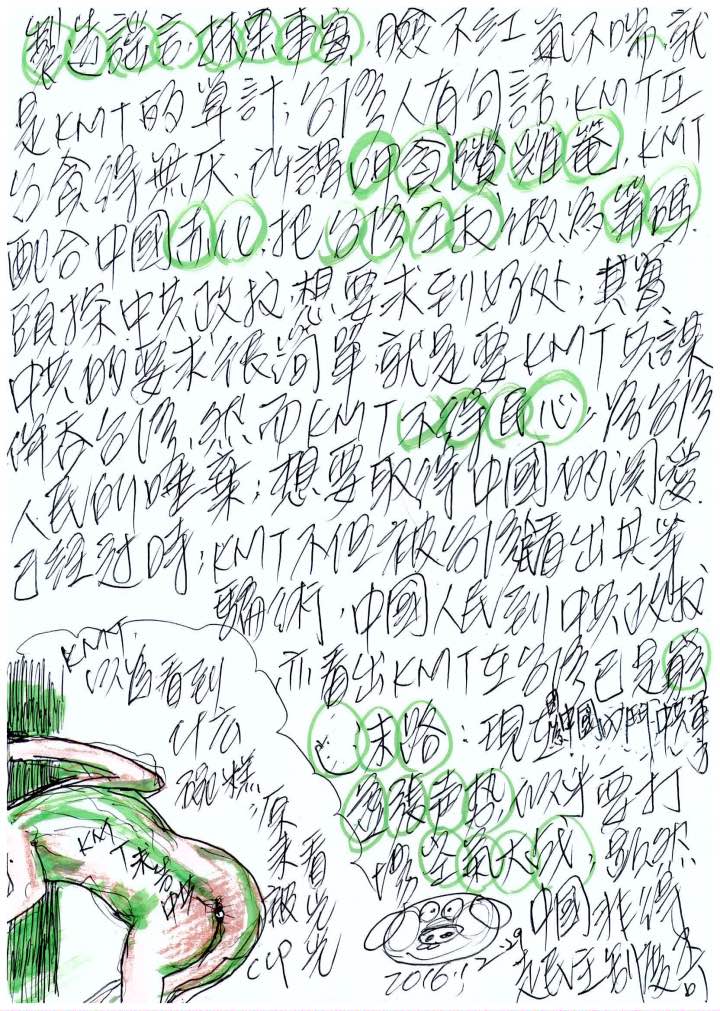 製造謠言.抹黑事實.臉不紅氣不喘.就
是KMT的算計;台灣人有句話.KMT在
台貪得無厭.所謂 貪 KMT
配合中國赤化.把台灣主权做為籌碼.
頭探中共政权.想要求到好处;其實
中共的要求很簡單.就是要KMT 謀
併吞台灣.然而KMT不得民心.為台灣
人民所唾棄;想要取得中國的 愛.
已經过時;KMT不但被台灣 看出其
騙術.中國人民到中共政权
亦看出KMT在台灣已是窮
途末路;現在 中國內鬥.中共軍
走勢.似乎要打
場空氣大战;雖然
中國非得
走民主制度不可
KMT
以為看到
什么
碗糕
原來
被看
光光
CCP
KMT
2016.12.29